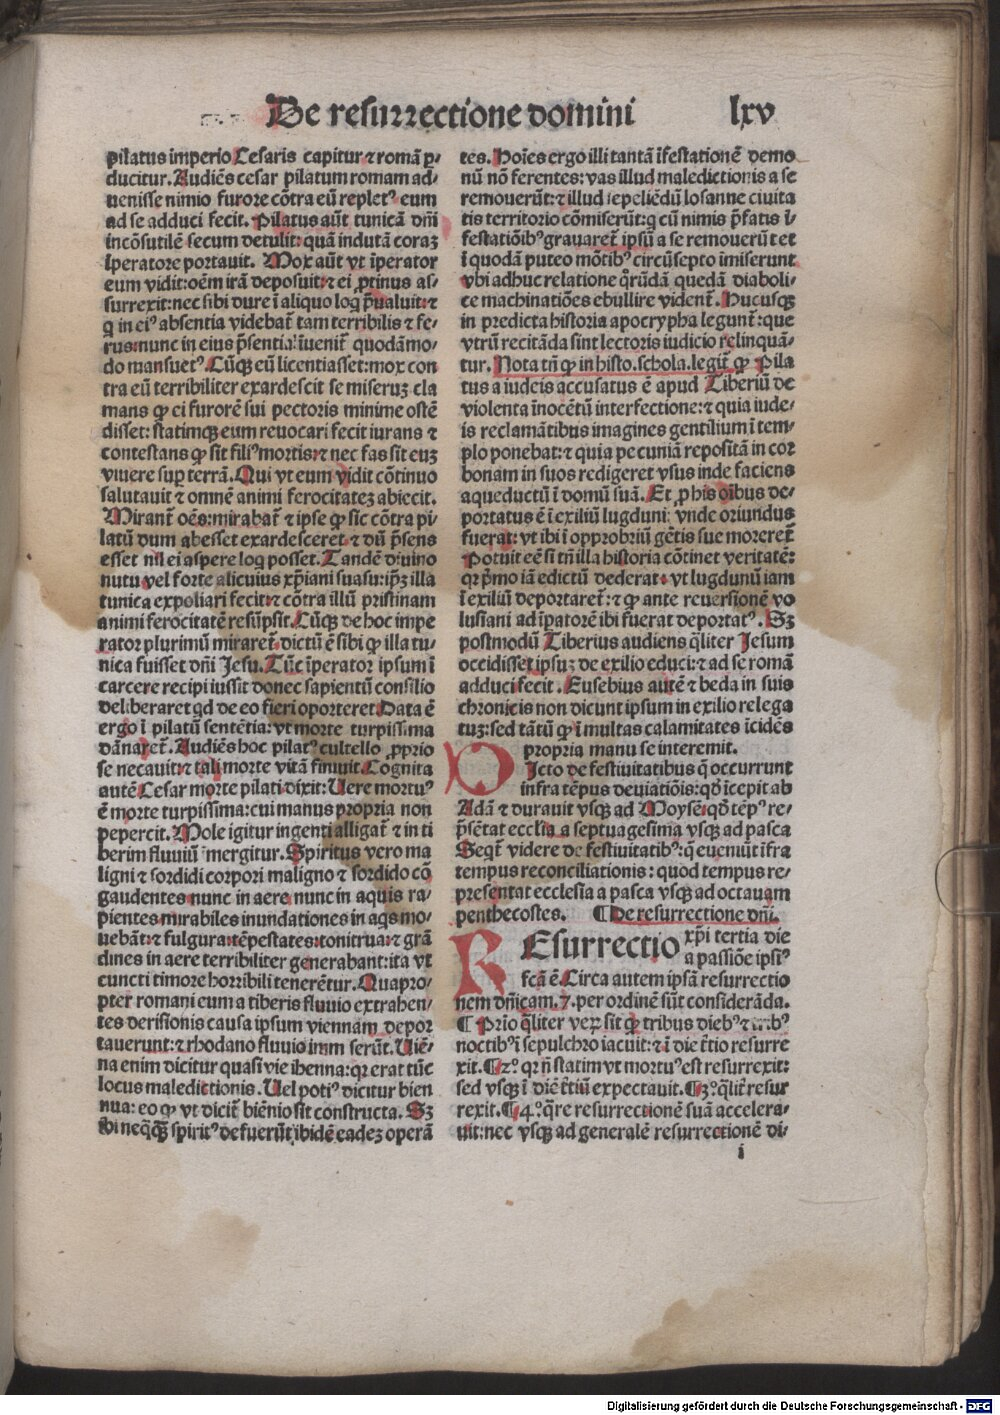 De resurrectione domini lxv
pilatus imperio Cesaris capitur ⁊ romā ꝑ-
ducitur. Audiēs cesar pilatum romam ad-
uenisse nimio furore cōtra eū repletꝰ eum
ad se adduci fecit. Pilatus aūt tunicā dñi
incōsutilē secum detulit: quā indutā coraꝫ
īperatore portauit. Mox aūt vt īperator
eum vidit: oēm irā deposuit: ⁊ ei ꝓtinus as-
surrexit: nec sibi dure ī aliquo loq̄ p̄ualuit: ⁊
q̄ in eiꝰ absentia videbat̄ tam terribilis ⁊ fe-
rus: nunc in eius p̄sentia: īuenit̄ quodāmo-
do mansuetꝰ. Cūqꝫ eū licentiasset: mox con
tra eū terribiliter exardescit se miseruꝫ cla
mans ꝙ ei furorē sui pectoris minime ostē
disset: statimqꝫ eum reuocari fecit iurans ⁊
contestans ꝙ sit filiꝰ mortis: ⁊ nec fas sit euꝫ
viuere suꝑ terrā. Qui vt eum vidit cōtinuo
salutauit ⁊ omnē animi ferocitateꝫ abiecit.
Mirant̄ oēs: mirabat̄ ⁊ ipse ꝙ sic cōtra pi-
latū dum abesset exardesceret ⁊ dū p̄sens
esset nil ei aspere loq̄ posset. Tandē diuino
nutu vel forte alicuius xp̄iani suasu: ip̄ꝫ illa
tunica expoliari fecit: ⁊ cōtra illū pristinam
animi ferocitatē resūpsit. Cūqꝫ de hoc impe
rator plurimū miraret̄: dictū ē sibi ꝙ illa tu-
nica fuisset dñi Jesu. Tūc īperator ipsum ī
carcere recipi iussit donec sapientū consilio
deliberaret qd de eo fieri oporteret. Data ē
ergo ī pilatū sentētia: vt morte turpissima
dānaret̄. Audiēs hoc pilatꝰ cultello ꝓprio
se necauit: ⁊ tali morte vitā finiuit. Cognita
autē Cesar morte pilati dixit: Uere mortuꝰ
ē morte turpissima: cui manus propria non
pepercit. Mole igitur ingenti alligat̄ ⁊ in ti
berim fluuiū īmergitur. Spiritus vero ma
ligni ⁊ sordidi corpori maligno ⁊ sordido cō
gaudentes nunc in aere nunc in aquis ra-
pientes mirabiles inundationes in aqs mo-
uebāt: ⁊ fulgura: tēpestates: tonitrua: ⁊ grā
dines in aere terribiliter generabant: ita vt
cuncti timore horribili tenerētur. Quapro-
pter romani eum a tiberis fluuio extrahen-
tes derisionis causa ipsum viennam depor
tauerunt: ⁊ rhodano fluuio imm serūt. Uiē-
na enim dicitur quasi vie ihenna: qꝛ erat tūc
locus maledictionis. Uel potiꝰ dicitur bien
nua: eo ꝙ vt dicit̄ biēnio sit constructa. Sꝫ
ibi neq̄qꝫ̄ spiritꝰ defuerūt ibidē eadeꝫ operā
tes. Hoīes ergo illi tantā īfestationē demo
nū nō ferentes: vas illud maledictionis a se
remouerūt: ⁊ illud sepeliēdū losanne ciuita
tis territorio cōmiserūt: q̄ cū nimis p̄fatis ī-
festatiōibꝰ grauaret̄ ipsū a se remouerūt et
ī quodā puteo mōtibꝰ circūsepto imiserunt
vbi adhuc relatione qrūdā quedā diaboli-
ce machinatiōes ebullire vident̄. Hucusqꝫ
in predicta historia apocrypha legunt̄: que
vtrū recitāda sint lectoris iudicio relinquā-
tur. Nota tñ ꝙ in histo. schola. legit̄ ꝙ Pila
tus a iudeis accusatus ē apud Tiberiū de
violenta īnocētū interfectione: ⁊ quia iude-
is reclamātibus imagines gentilium ī tem-
plo ponebat: ⁊ quia pecuniā repositā in cor
bonam in suos redigeret vsus inde faciens
aqueductū ī domū suā. Et ꝓ his oībus de-
portatus ē ī exiliū lugduni: vnde oriundus
fuerat: vt ibi ī opprobriū gētis sue moreret̄
Potuit eē si tñ illa historia cōtinet veritatē:
qꝛ p̄mo iā edictū dederat: vt lugdunū iam
ī exiliū deportaret̄: ⁊ ꝙ ante reuersionē vo
lusiani ad īpatorē ibi fuerat deportatꝰ. Sꝫ
postmodū Tiberius audiens qliter Jesum
occidisset ipsuꝫ de exilio educi: ⁊ ad se romā
adduci fecit. Eusebius autē ⁊ beda in suis
chronicis non dicunt ipsum in exilio relega
tuꝫ: sed tātū ꝙ ī multas calamitates īcidēs
propria manu se interemit.
DIcto de festiuitatibus q̄ occurrunt
infra tēpus deuiatiōis: qd̄ īcepit ab
Adā ⁊ durauit vsqꝫ ad Moysē: qd̄ tēpꝰ re-
p̄sētat eccl̄ia a septuagesima vsqꝫ ad pasca
Seqt̄ videre de festiuitatibꝰ: q̄ eueniūt īfra
tempus reconciliationis: quod tempus re-
presentat ecclesia a pasca vsqꝫ ad octauam
penthecostes. ¶ De resurrectione dñi.
REsurrectio xp̄i tertia die
a passiōe ipsiꝰ
fcā ē. Circa autem ipsā resurrectio
nem dñicam .7. per ordinē sūt considerāda.
¶ Prīo qliter veꝝ sit ꝙ tribus diebꝰ ⁊ tribꝰ
noctibꝰ ī sepulchro iacuit: ⁊ ī die t̄tio resurre
xit. ¶ 2ͦ. qꝛ nō statim vt mortuꝰ est resurrexit:
sed vsqꝫ ī diē t̄tiū expectauit. ¶ 3ͦ. qlit̄ resur
rexit. ¶ 4ͦ. qre resurrectionē suā accelera-
uit: nec vsqꝫ ad generalē resurrectionē di-
i
Digitalisierung gefördert durch die Deutsche Forschungsgemeinschaft - DFG